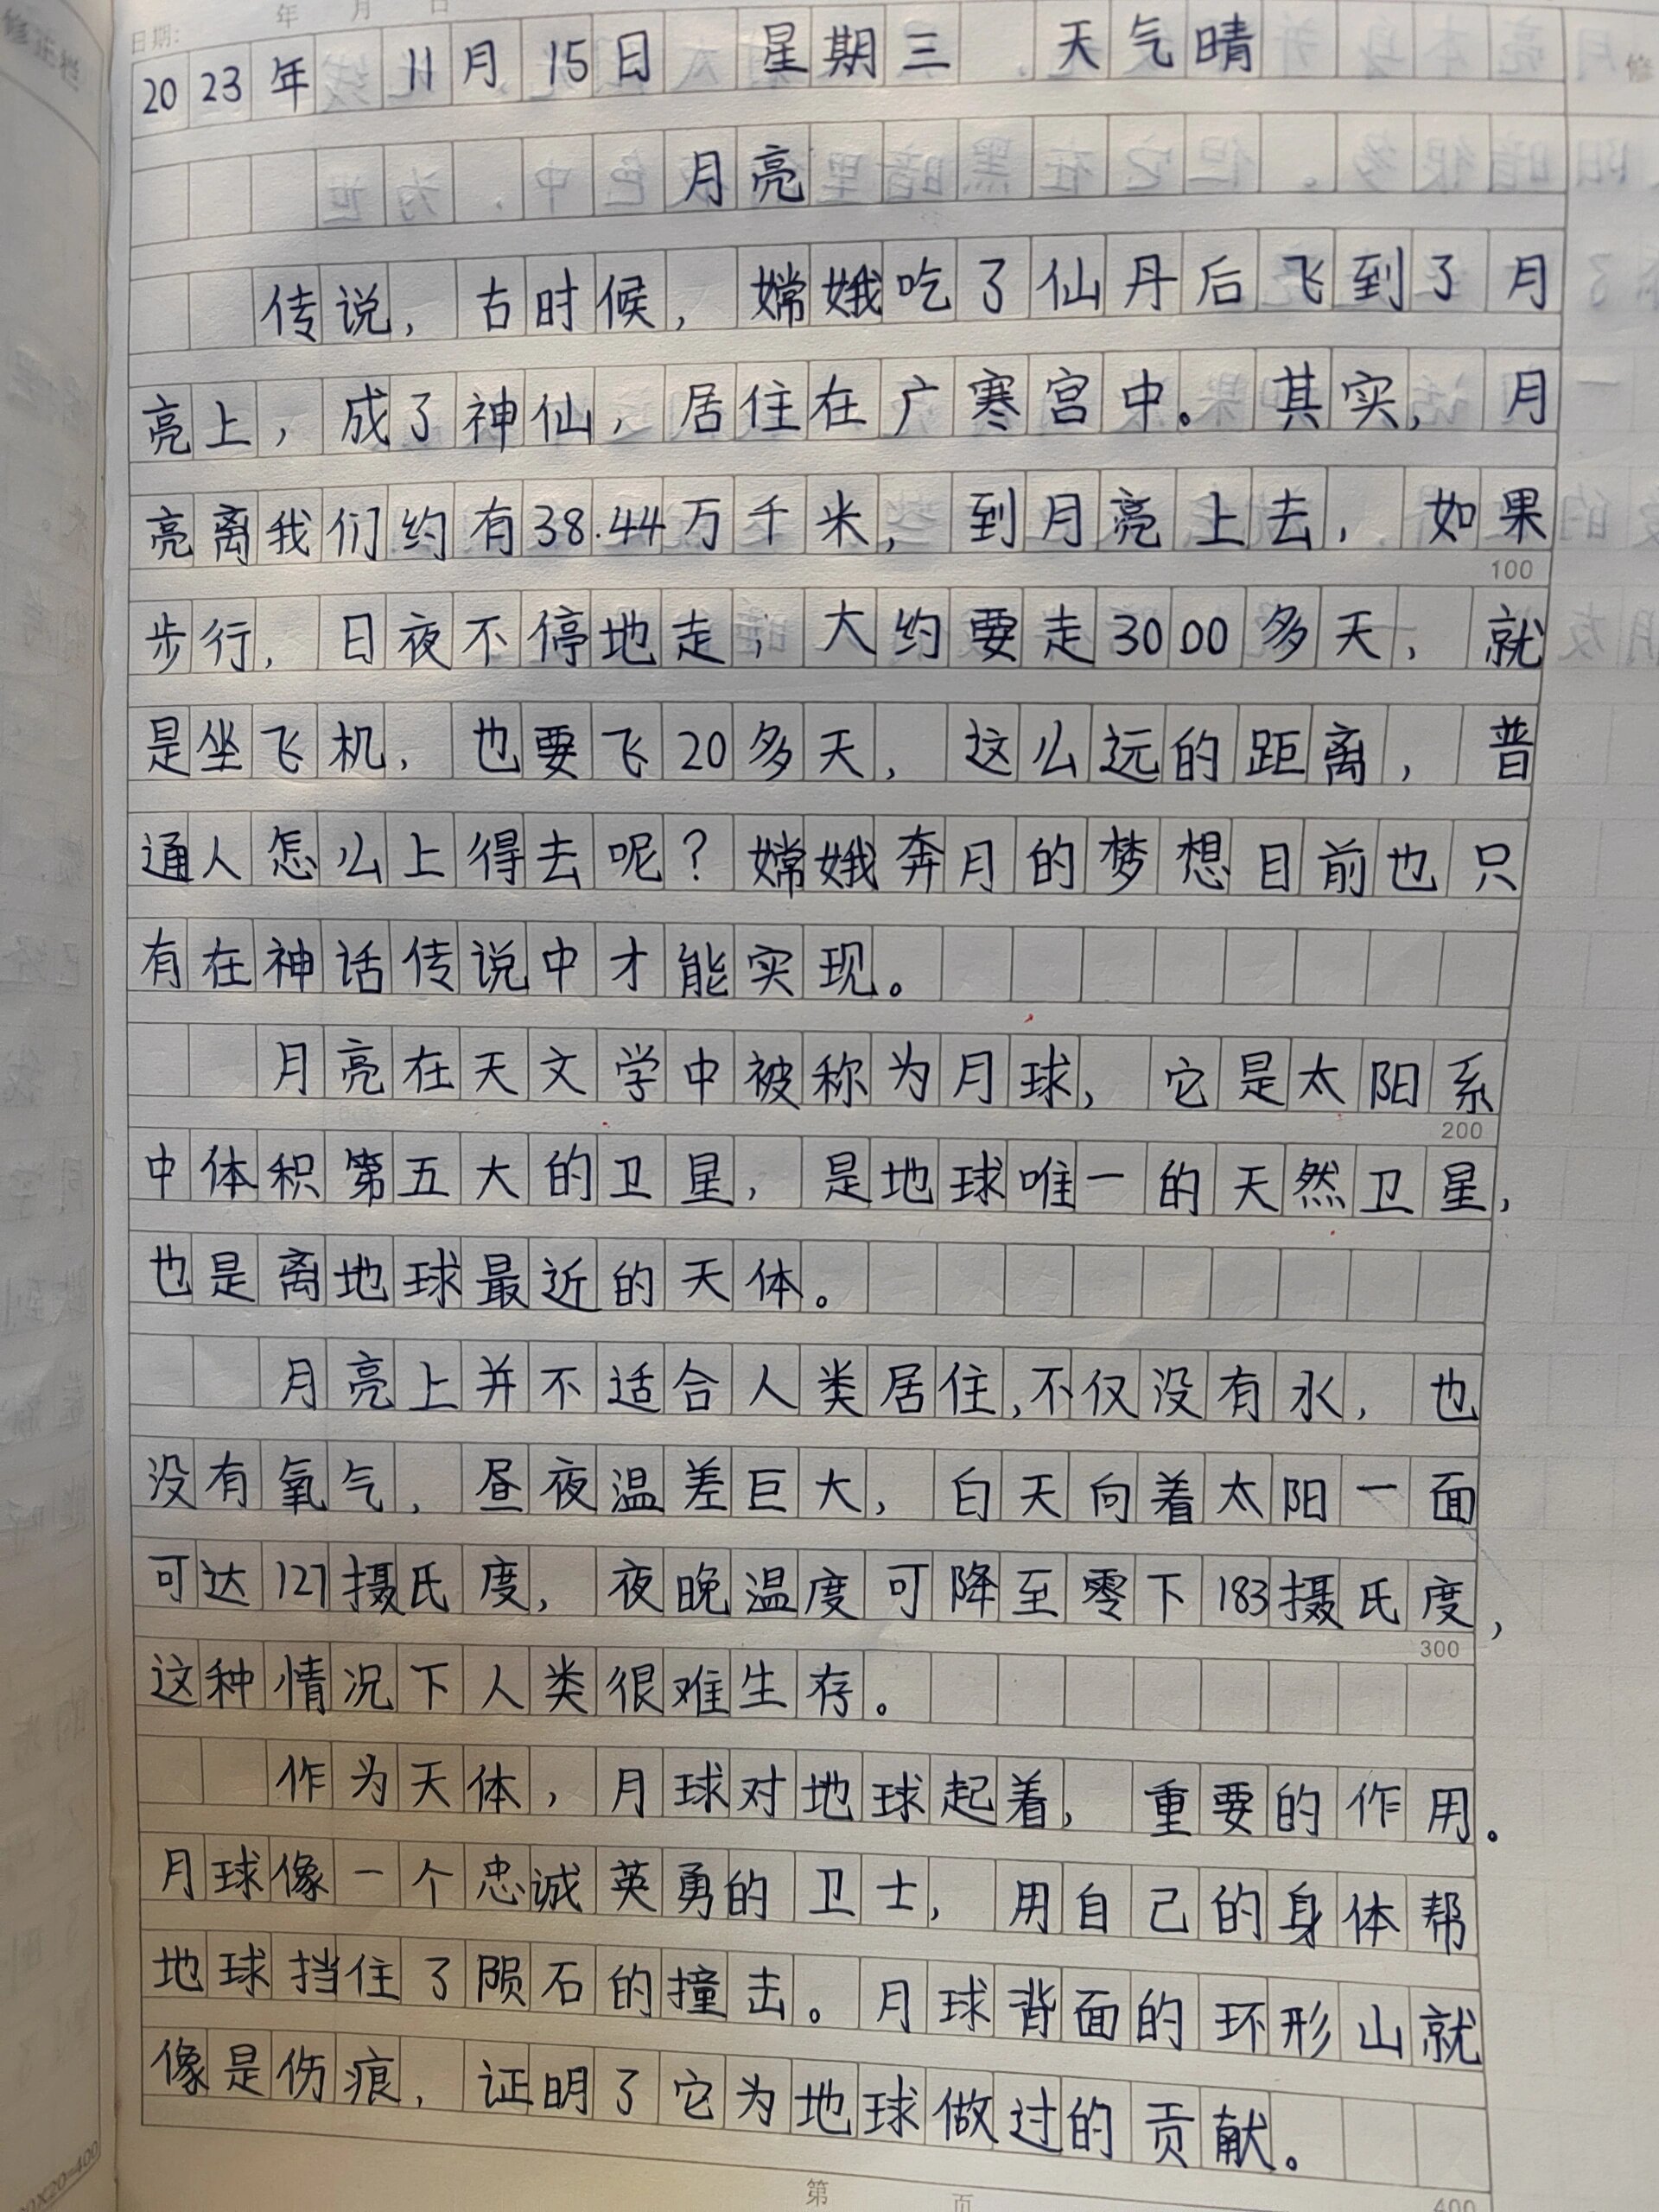 日期: 年 月 日
2023年 11月 15日 星期三 天气晴
月亮
传说，古时候，嫦娥吃了仙丹后飞到了月
亮上，成了神仙，居住在广寒宫中。其实，月
亮离我们约有38.44万千米，到月亮上去，如果
100
步行，日夜不停地走，大约要走3000多天，就
是坐飞机，也要飞20多天，这么远的距离，普
通人怎么上得去呢？嫦娥奔月的梦想目前也只
有在神话传说中才能实现。
月亮在天文学中被称为月球，它是太阳系
200
中体积第五大的卫星，是地球唯一的天然卫星，
也是离地球最近的天体。
月亮上并不适合人类居住,不仅没有水，也
没有氧气，昼夜温差巨大，白天向着太阳一面
可达127摄氏度，夜晚温度可降至零下183摄氏度，
300
这种情况下人类很难生存。
作为天体，月球对地球起着，重要的作用。
月球像一个忠诚英勇的卫士，用自己的身体帮
地球挡住了陨石的撞击。月球背面的环形山就
像是伤痕，证明了它为地球做过的贡献。
400
第 页